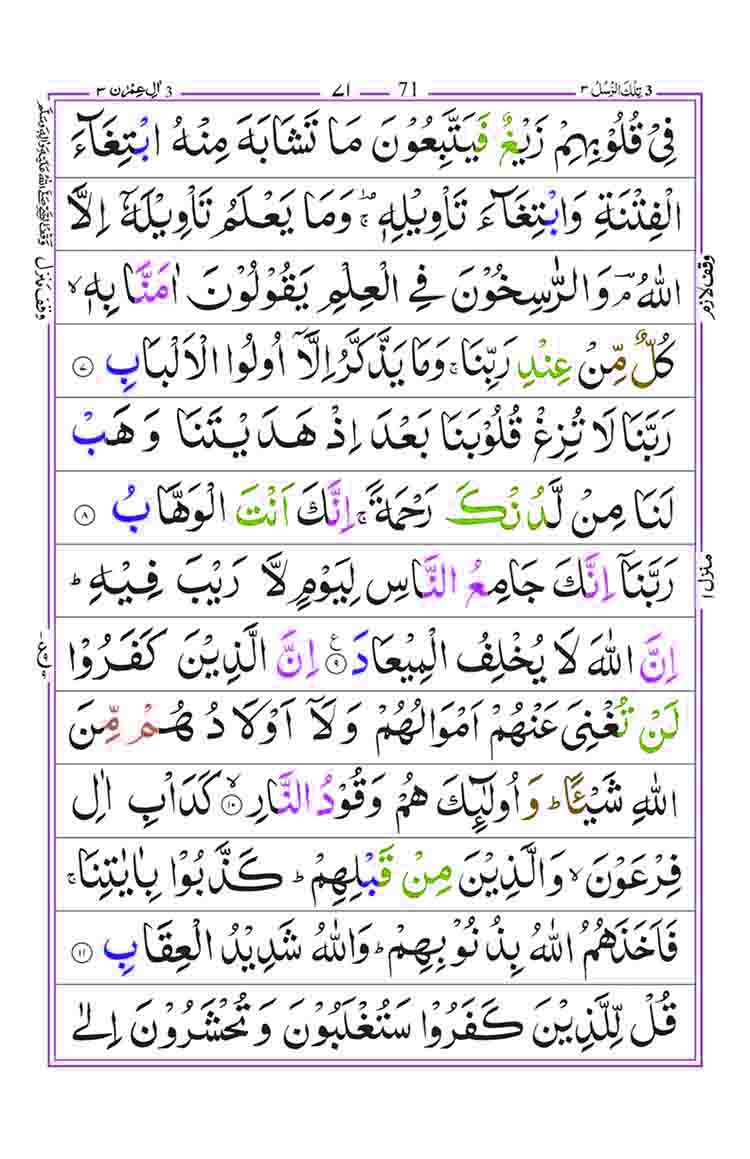 3 تِلْكَ الرُّسُلُ ٣
71 — ٧١
3 اٰلِ عِمْرٰن ٣
فِیْ قُلُوْبِهِمْ زَیْغٌ فَیَتَّبِعُوْنَ مَا تَشَابَهَ مِنْهُ ابْتِغَآءَ
الْفِتْنَةِ وَابْتِغَآءَ تَاْوِیْلِهٖ ۚ وَمَا یَعْلَمُ تَاْوِیْلَهٗۤ اِلَّا
اللّٰهُ ۘ وَالرّٰسِخُوْنَ فِی الْعِلْمِ یَقُوْلُوْنَ اٰمَنَّا بِهٖ ۙ
كُلٌّ مِّنْ عِنْدِ رَبِّنَا ۚ وَمَا یَذَّكَّرُ اِلَّاۤ اُولُوا الْاَلْبَابِ ۝٧
رَبَّنَا لَا تُزِغْ قُلُوْبَنَا بَعْدَ اِذْ هَدَیْتَنَا وَهَبْ
لَنَا مِنْ لَّدُنْكَ رَحْمَةً ۚ اِنَّكَ اَنْتَ الْوَهَّابُ ۝٨
رَبَّنَاۤ اِنَّكَ جَامِعُ النَّاسِ لِیَوْمٍ لَّا رَیْبَ فِیْهِ ؕ
اِنَّ اللّٰهَ لَا یُخْلِفُ الْمِیْعَادَ ۝٩ ع اِنَّ الَّذِیْنَ كَفَرُوْا
لَنْ تُغْنِیَ عَنْهُمْ اَمْوَالُهُمْ وَلَاۤ اَوْلَادُهُمْ مِّنَ
اللّٰهِ شَیْـًٔا ؕ وَاُولٰٓئِكَ هُمْ وَقُوْدُ النَّارِ ۙ ۝١٠ كَدَاْبِ اٰلِ
فِرْعَوْنَ ۙ وَالَّذِیْنَ مِنْ قَبْلِهِمْ ؕ كَذَّبُوْا بِاٰیٰتِنَا ۚ
فَاَخَذَهُمُ اللّٰهُ بِذُنُوْبِهِمْ ؕ وَاللّٰهُ شَدِیْدُ الْعِقَابِ ۝١١
قُلْ لِّلَّذِیْنَ كَفَرُوْا سَتُغْلَبُوْنَ وَتُحْشَرُوْنَ اِلٰی
وقف لازم
منزل ١
وقف النبی صلی الله علیه واله وسلم
وقف منزل